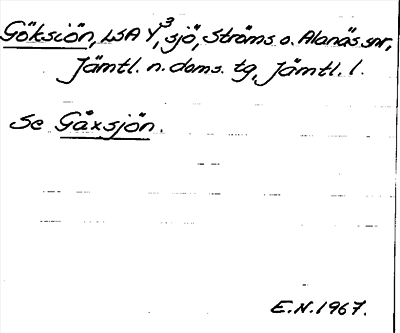 Göksjön, LSA Y³, sjö, Ströms o. Alanäs snr,
Jämtl. n. doms. tg, Jämtl. l.
Se Gåxsjön.
E.N. 1967.